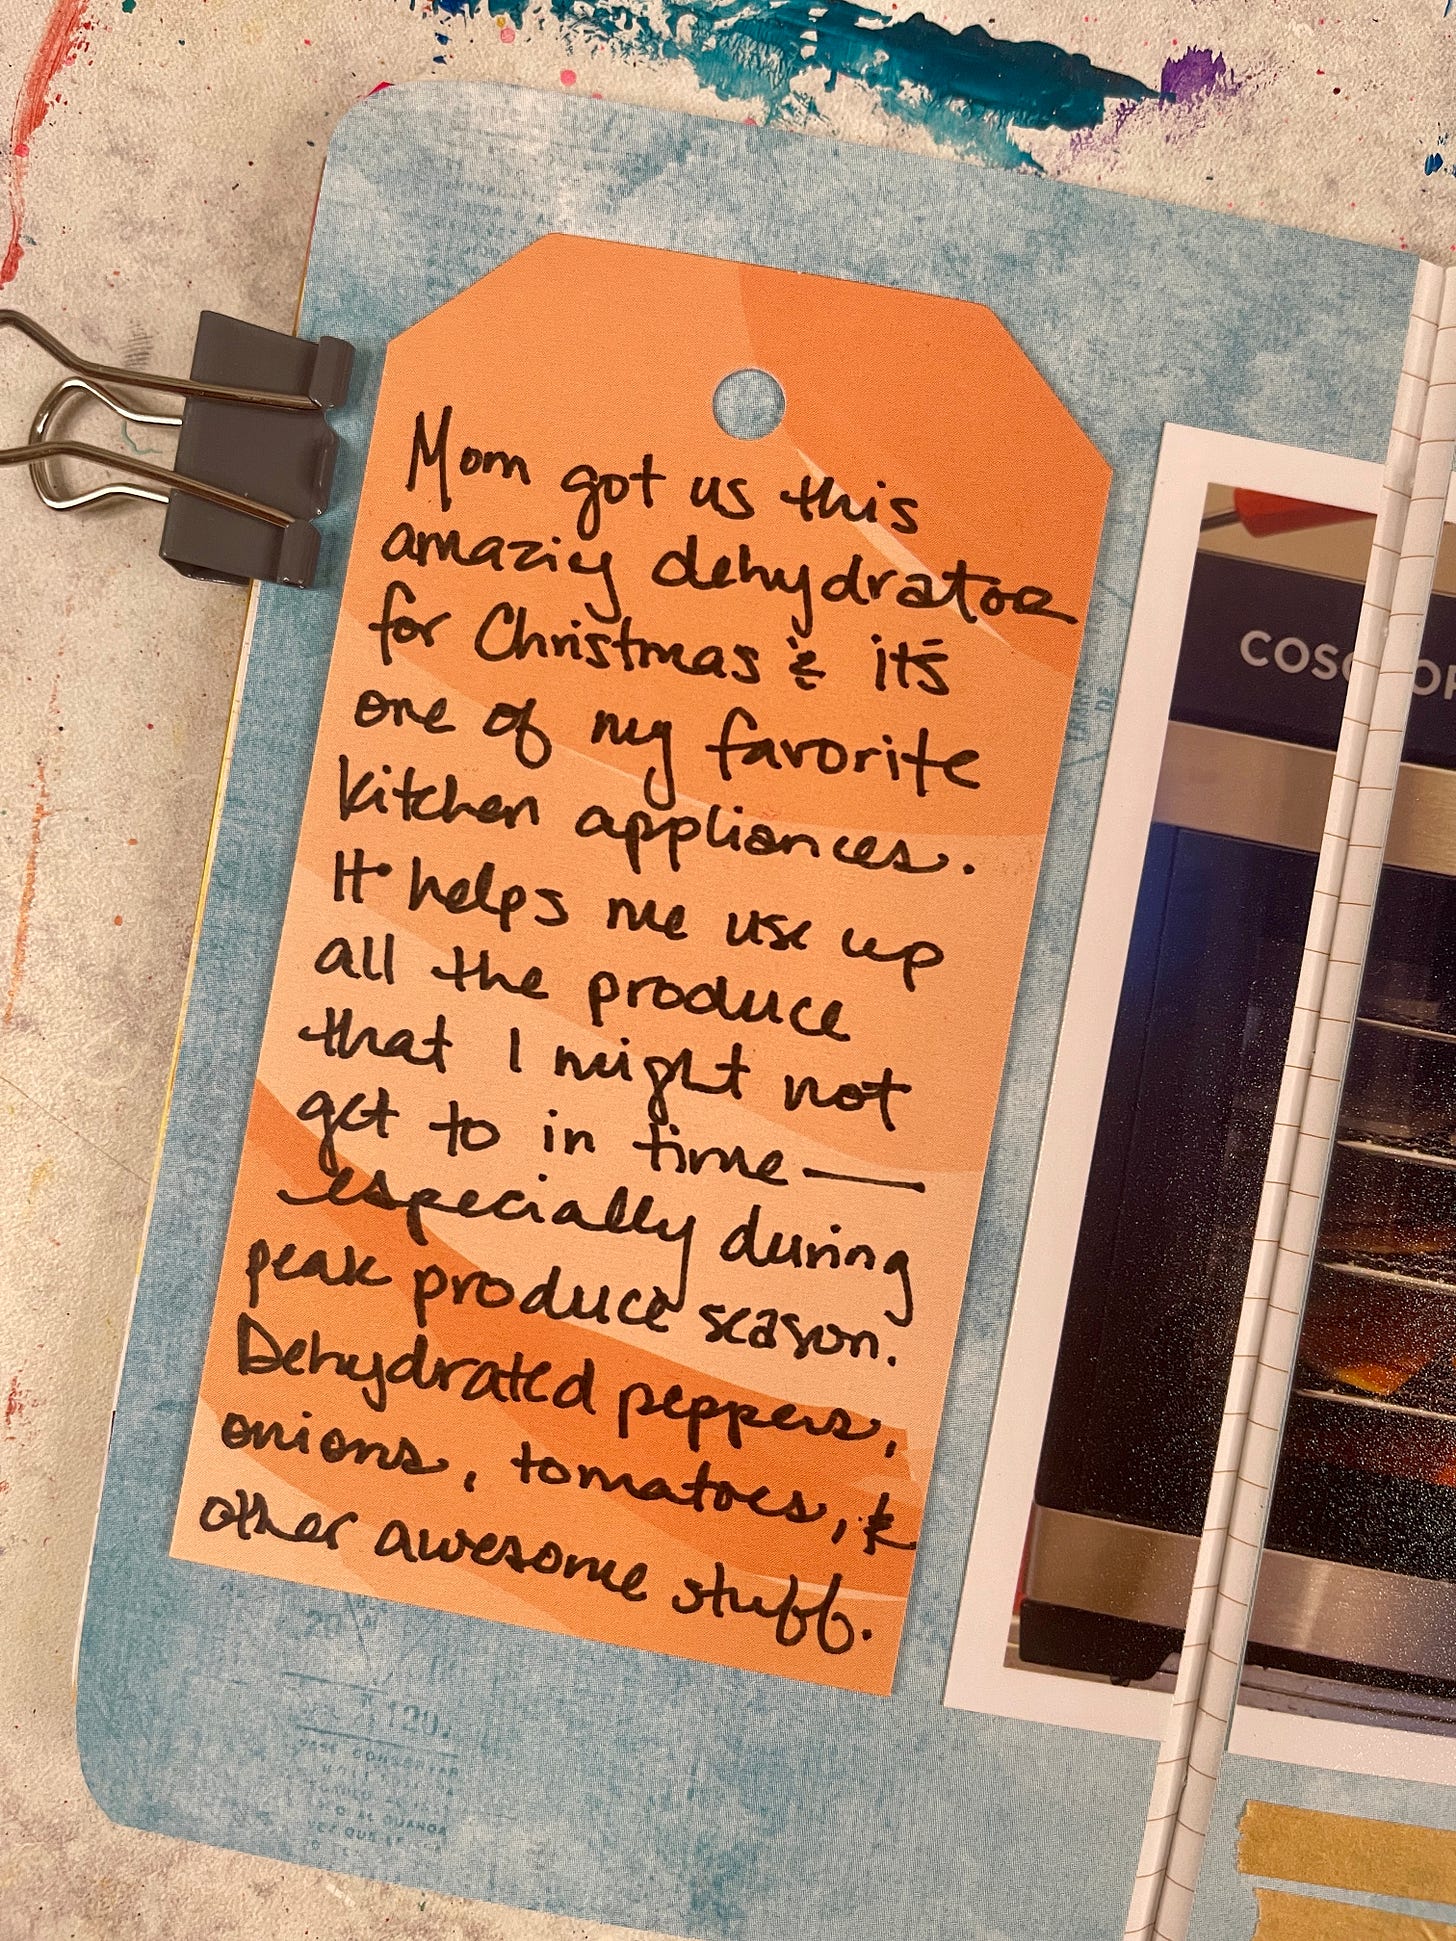 Mom got us this
amazing dehydrator
for Christmas & it's
one of my favorite
kitchen appliances.
It helps me use up
all the produce
that I might not
get to in time—
especially during
peak produce season.
Dehydrated peppers,
onions, tomatoes, &
other awesome stuff.
COSORI
120.